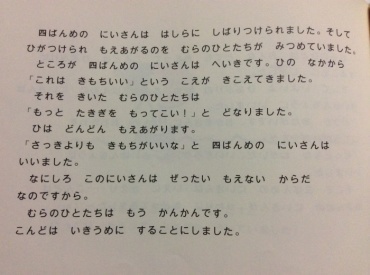 四ばんめの　にいさんは　はしらに　しばりつけられました。そして
ひがつけられ　もえあがるのを　むらのひとたちが　みつめていました。
ところが　四ばんめの　にいさんは　へいきです。ひの　なかから
「これは　きもちいい」という　こえが　きこえてきました。
それを　きいた　むらのひとたちは
「もっと　たきぎを　もってこい！」と　どなりました。
ひは　どんどん　もえあがります。
「さっきよりも　きもちがいいな」と　四ばんめの　にいさんは
いいました。
なにしろ　このにいさんは　ぜったい　もえない　からだ
なのですから。
むらのひとたちは　もう　かんかんです。
こんどは　いきうめに　することにしました。